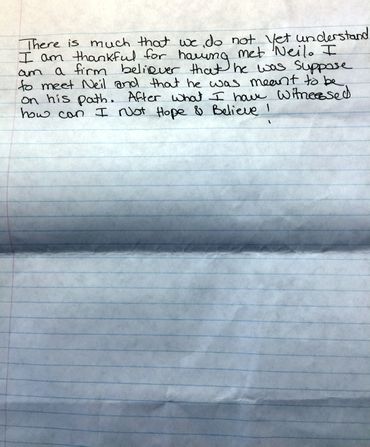 There is much that we do not Yet understand
I am thankful for having met Neil. I
am a firm believer that he was suppose
to meet Neil and that he was meant to be
on his path. After what I have witnessed
how can I Not Hope & Believe!